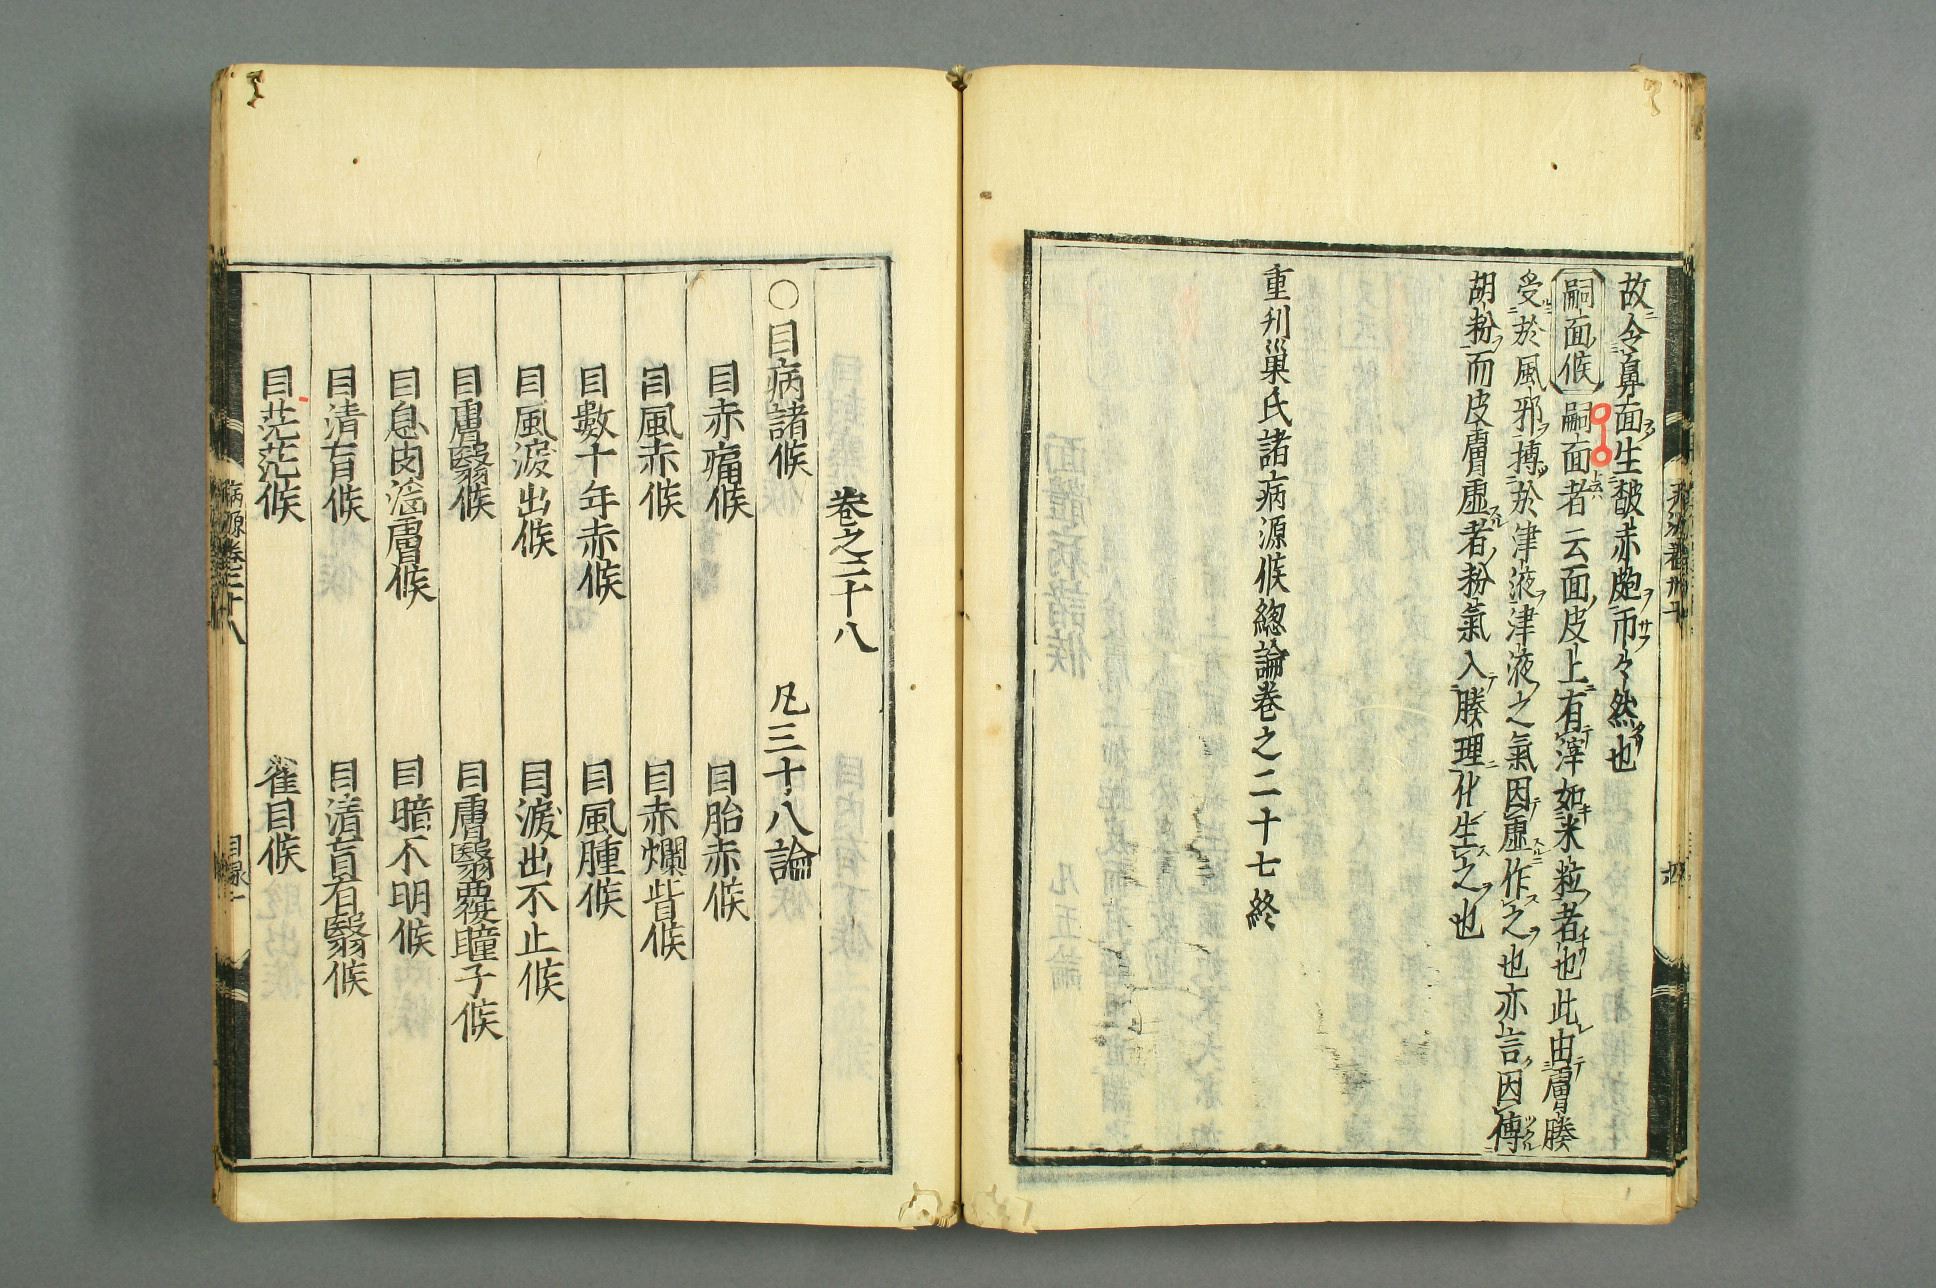 故令鼻面生皶赤皰帀々然也
嗣面候 嗣面者云面皮上有滓如米粒者也此由膚腠
受於風邪搏於津液津液之氣因虛作之也亦言因傅
胡粉而皮膚虛者粉氣入腠理化生之也
重刋巢氏諸病源候總論卷之二十七終
卷之二十八
○目病諸候 凡三十八論
目赤痛候 目胎赤候
目風赤候 目赤爛眥候
目數十年赤候 目風腫候
目風淚出候 目淚出不止候
目膚翳候 目膚翳覆瞳子候
目息肉淫膚候 目暗不明候
目清盲候 目清盲有翳候
目茫茫候 雀目候
病源卷二十八 目录一